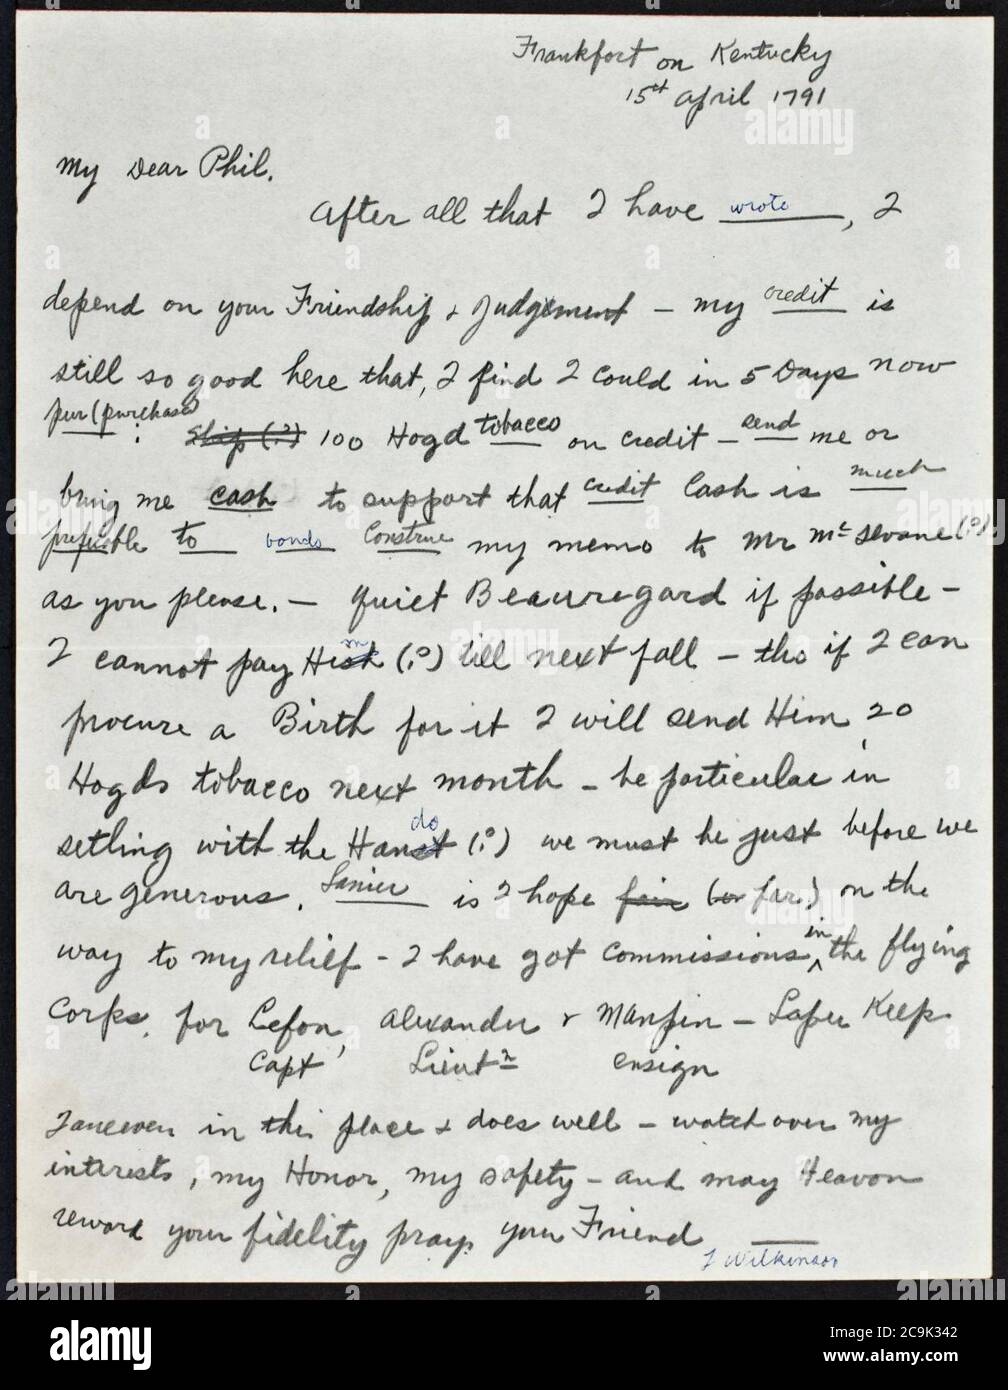 Frankfort on Kentucky
15th April 1791
My Dear Phil.
After all that I have wrote, I
depend on your Friendship & Judgement – my credit is
still so good here that, I find I could in 5 Days now
pur (purchase) : Ship (?) 100 Hogd tobacco on credit – send me or
bring me cash to support that credit Cash is much
to bonds Construe my memo to Mr (?)
as you please. – quiet Beauregard if possible –
I cannot pay Him (?) till next fall – tho if I can
procure a Birth for it I will send Him 20
Hogds tobacco next month – be particular in
settling with the (?) we must be just before we
are generous. is I hope fair (or far) on the
way to my relief – I have got commissions in the flying
Corps. for Lefon, Alexander & – Keep
Capt Lieut ensign
in this place & does well – watch over my
interests, my Honor, my safety – and may Heaven
reward your fidelity prays your Friend
J Wilkinson
alamy
Image ID: 2C9K342
www.alamy.com